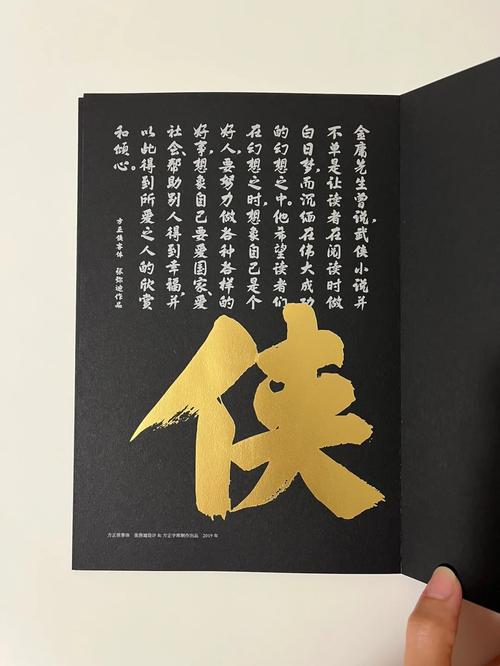 金庸先生曾说,武侠小说并
不单是让读者在阅读时做
白日梦,而沉缅在伟大成功
的幻想之中。他希望读者们
在幻想之时,想象自己是个
好人,要努力做各种各样的
好事,想象自己要爱国家、爱
社会、帮助别人得到幸福,并
以此得到所爱之人的欣赏
和倾心。
方正侠客体 张弥迪作品
侠
方正侠客体 张弥迪设计 & 方正字库制作出品 2019 年